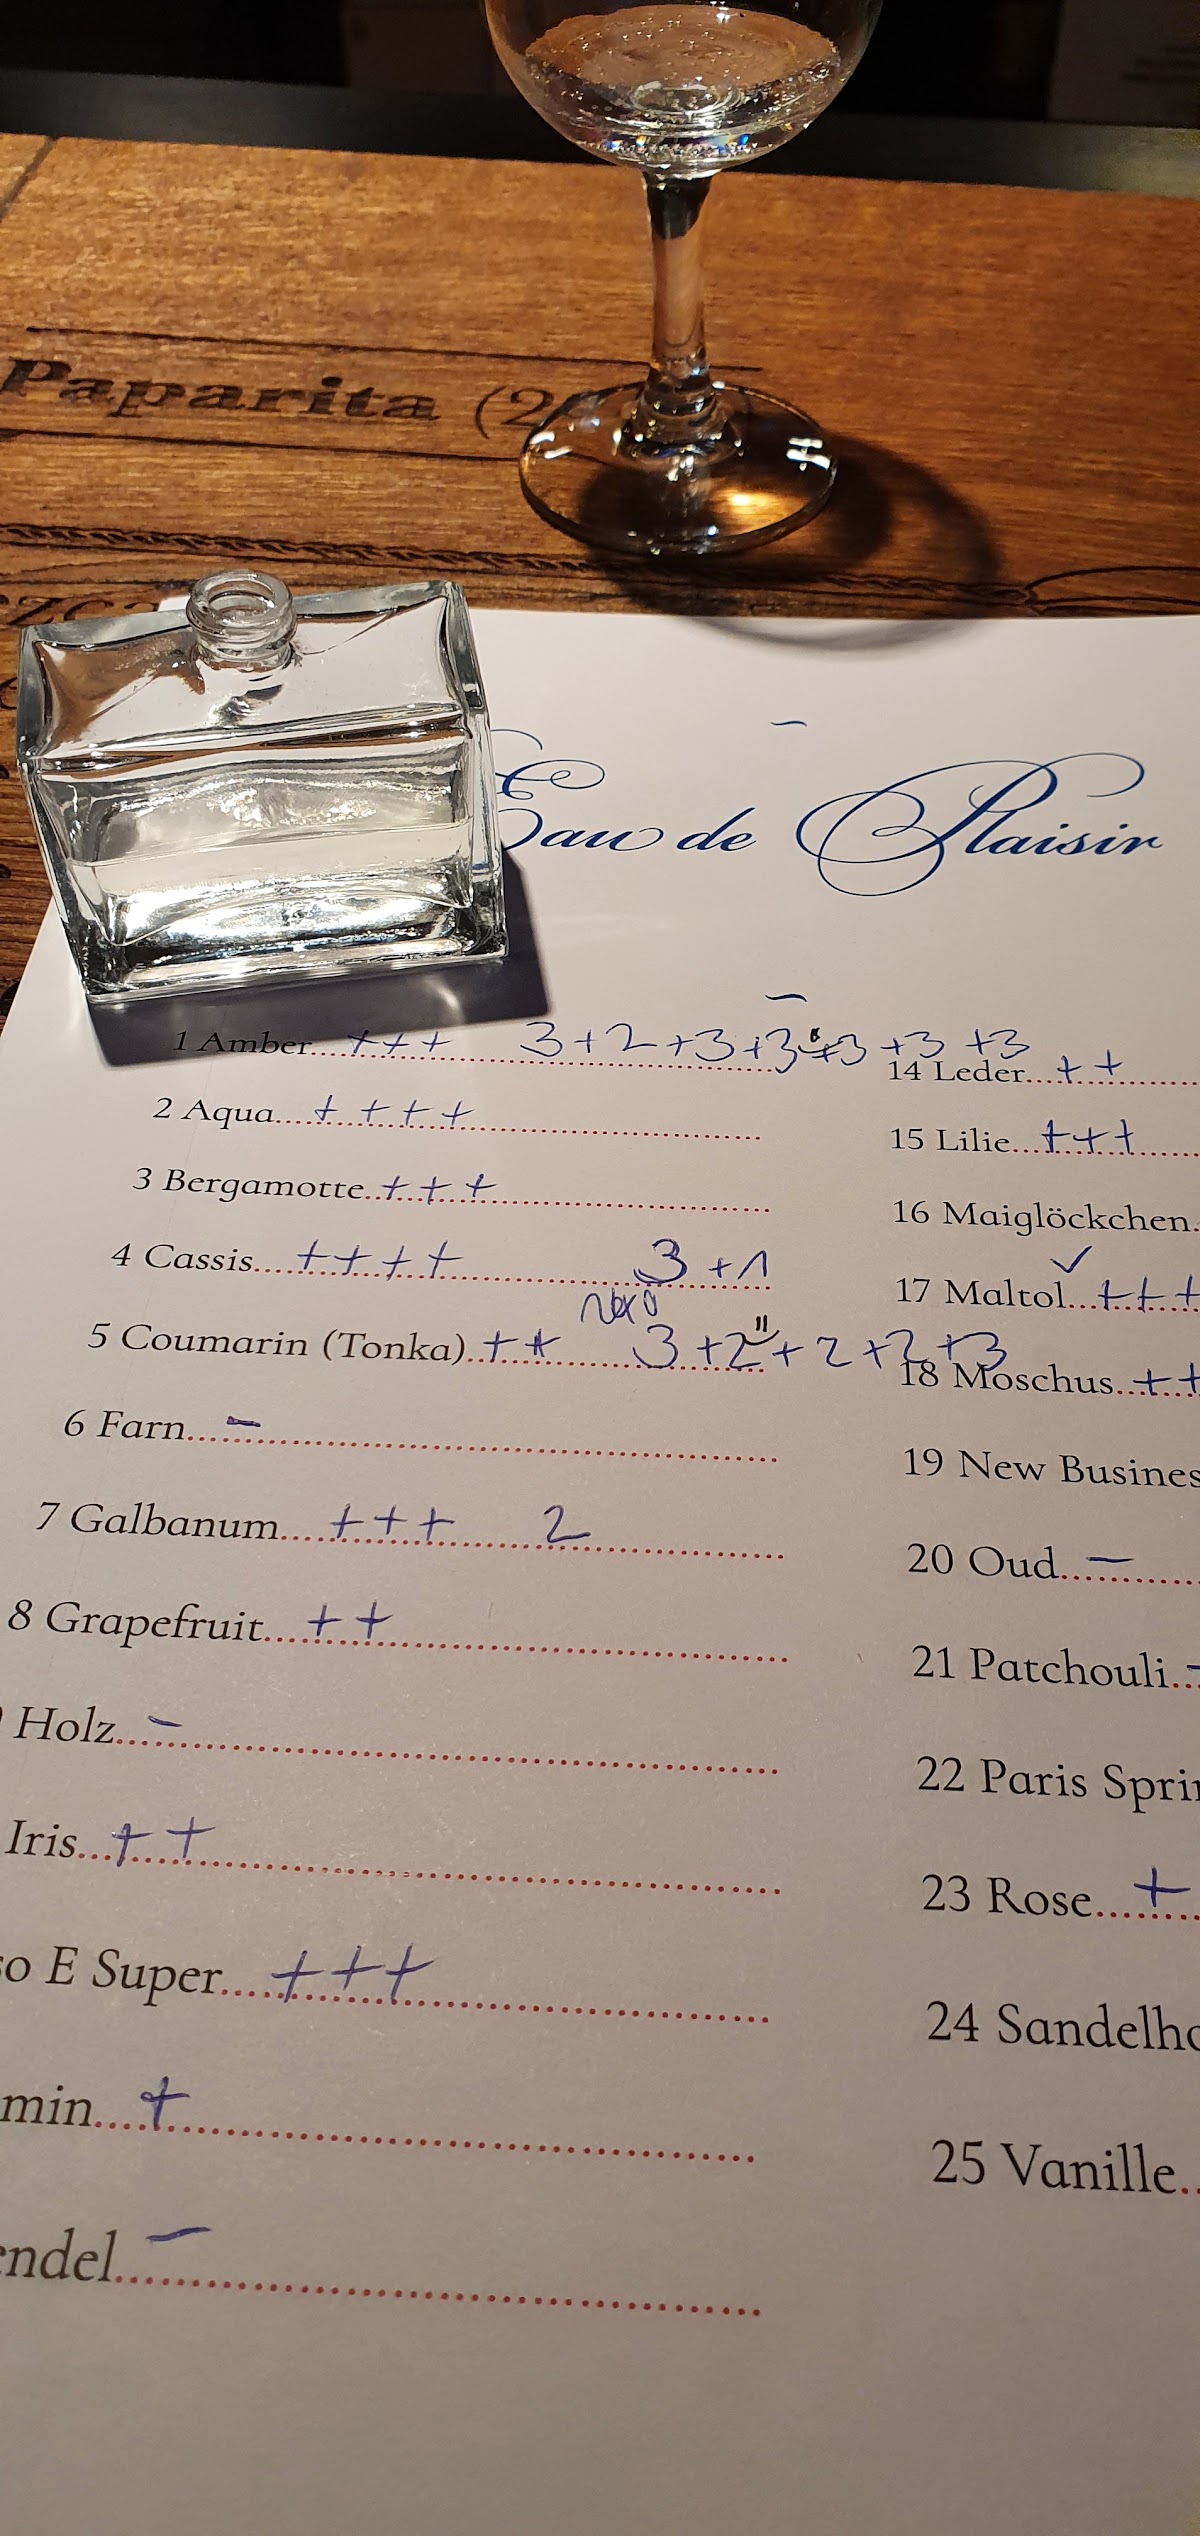 Paparita (2
Eau de Plaisir
1 Amber.... +++ 3+2+3+3+3+3+3
2 Aqua.... ++++
3 Bergamotte.. +++
4 Cassis.... ++++ 3+1
5 Coumarin (Tonka).. ++ 3+2+2+2+3
6 Farn.... -
7 Galbanum.... +++ 2
8 Grapefruit.... ++
Holz.... -
Iris.... ++
so E Super.... +++
min.... +
endel.... -
14 Leder.... ++
15 Lilie.... +++
16 Maiglöckchen.
17 Maltol... ✓ +++
18 Moschus... ++
19 New Busines
20 Oud.... -
21 Patchouli... -
22 Paris Sprin
23 Rose.... +
24 Sandelho
25 Vanille..